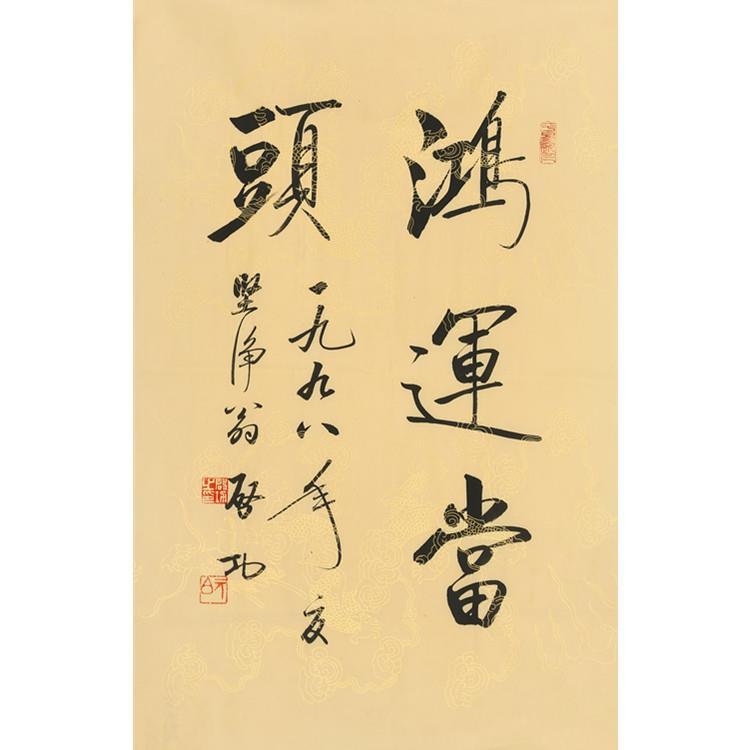 鴻運當
頭
一九九八年夏
堅淨翁啟功